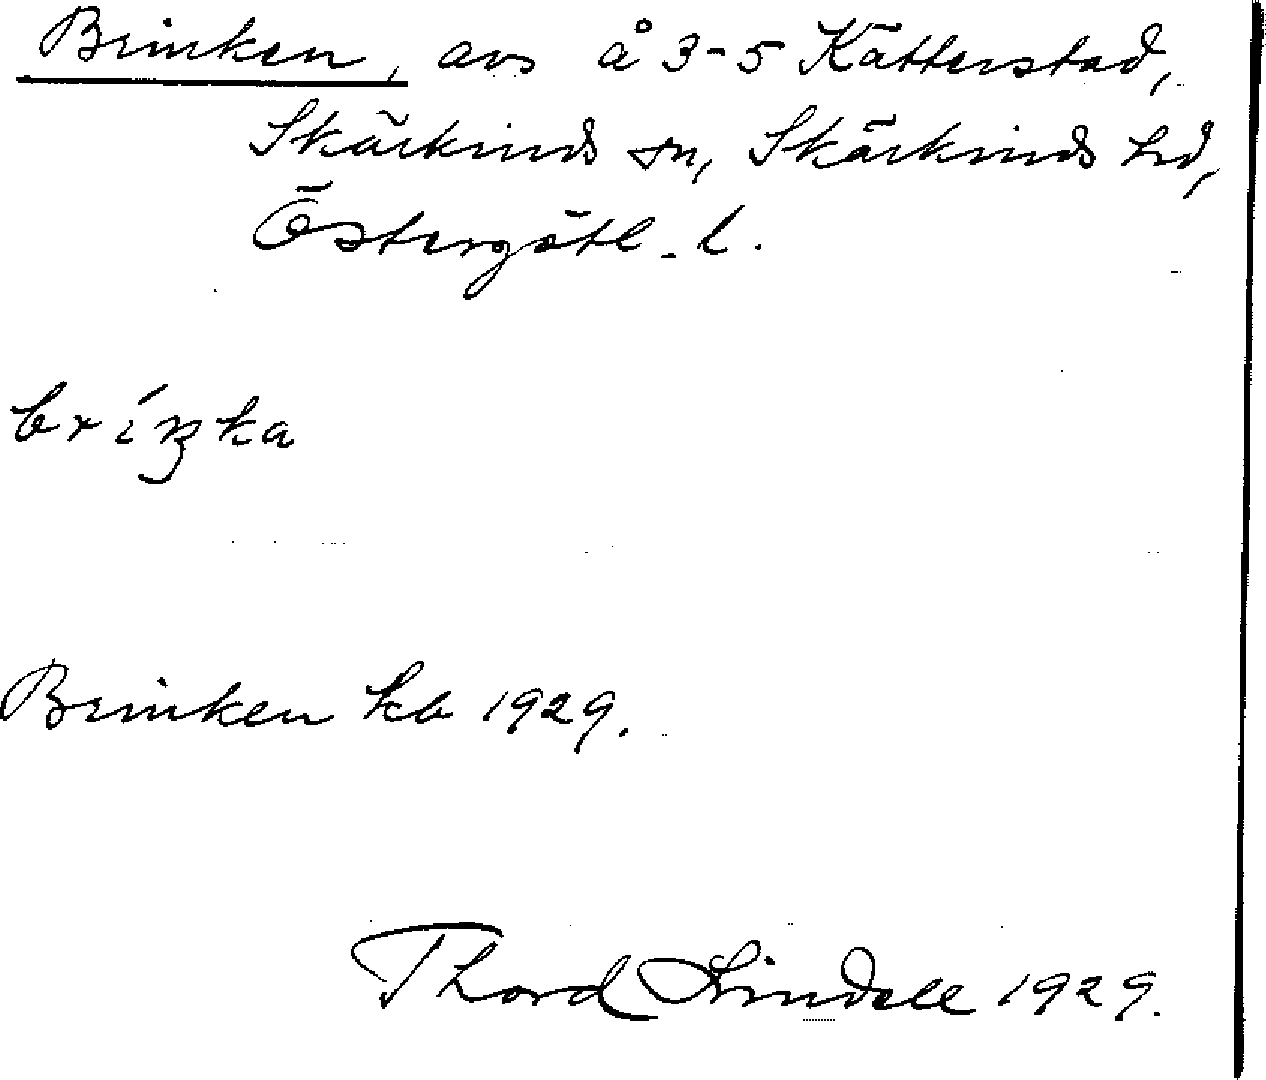 Brinken, avs å 3-5 Kätterstad,
Skärkinds sn, Skärkinds hd,
Östergötl. l.
bríŋka
Brinken kb 1929.
Thord Lindell 1929.